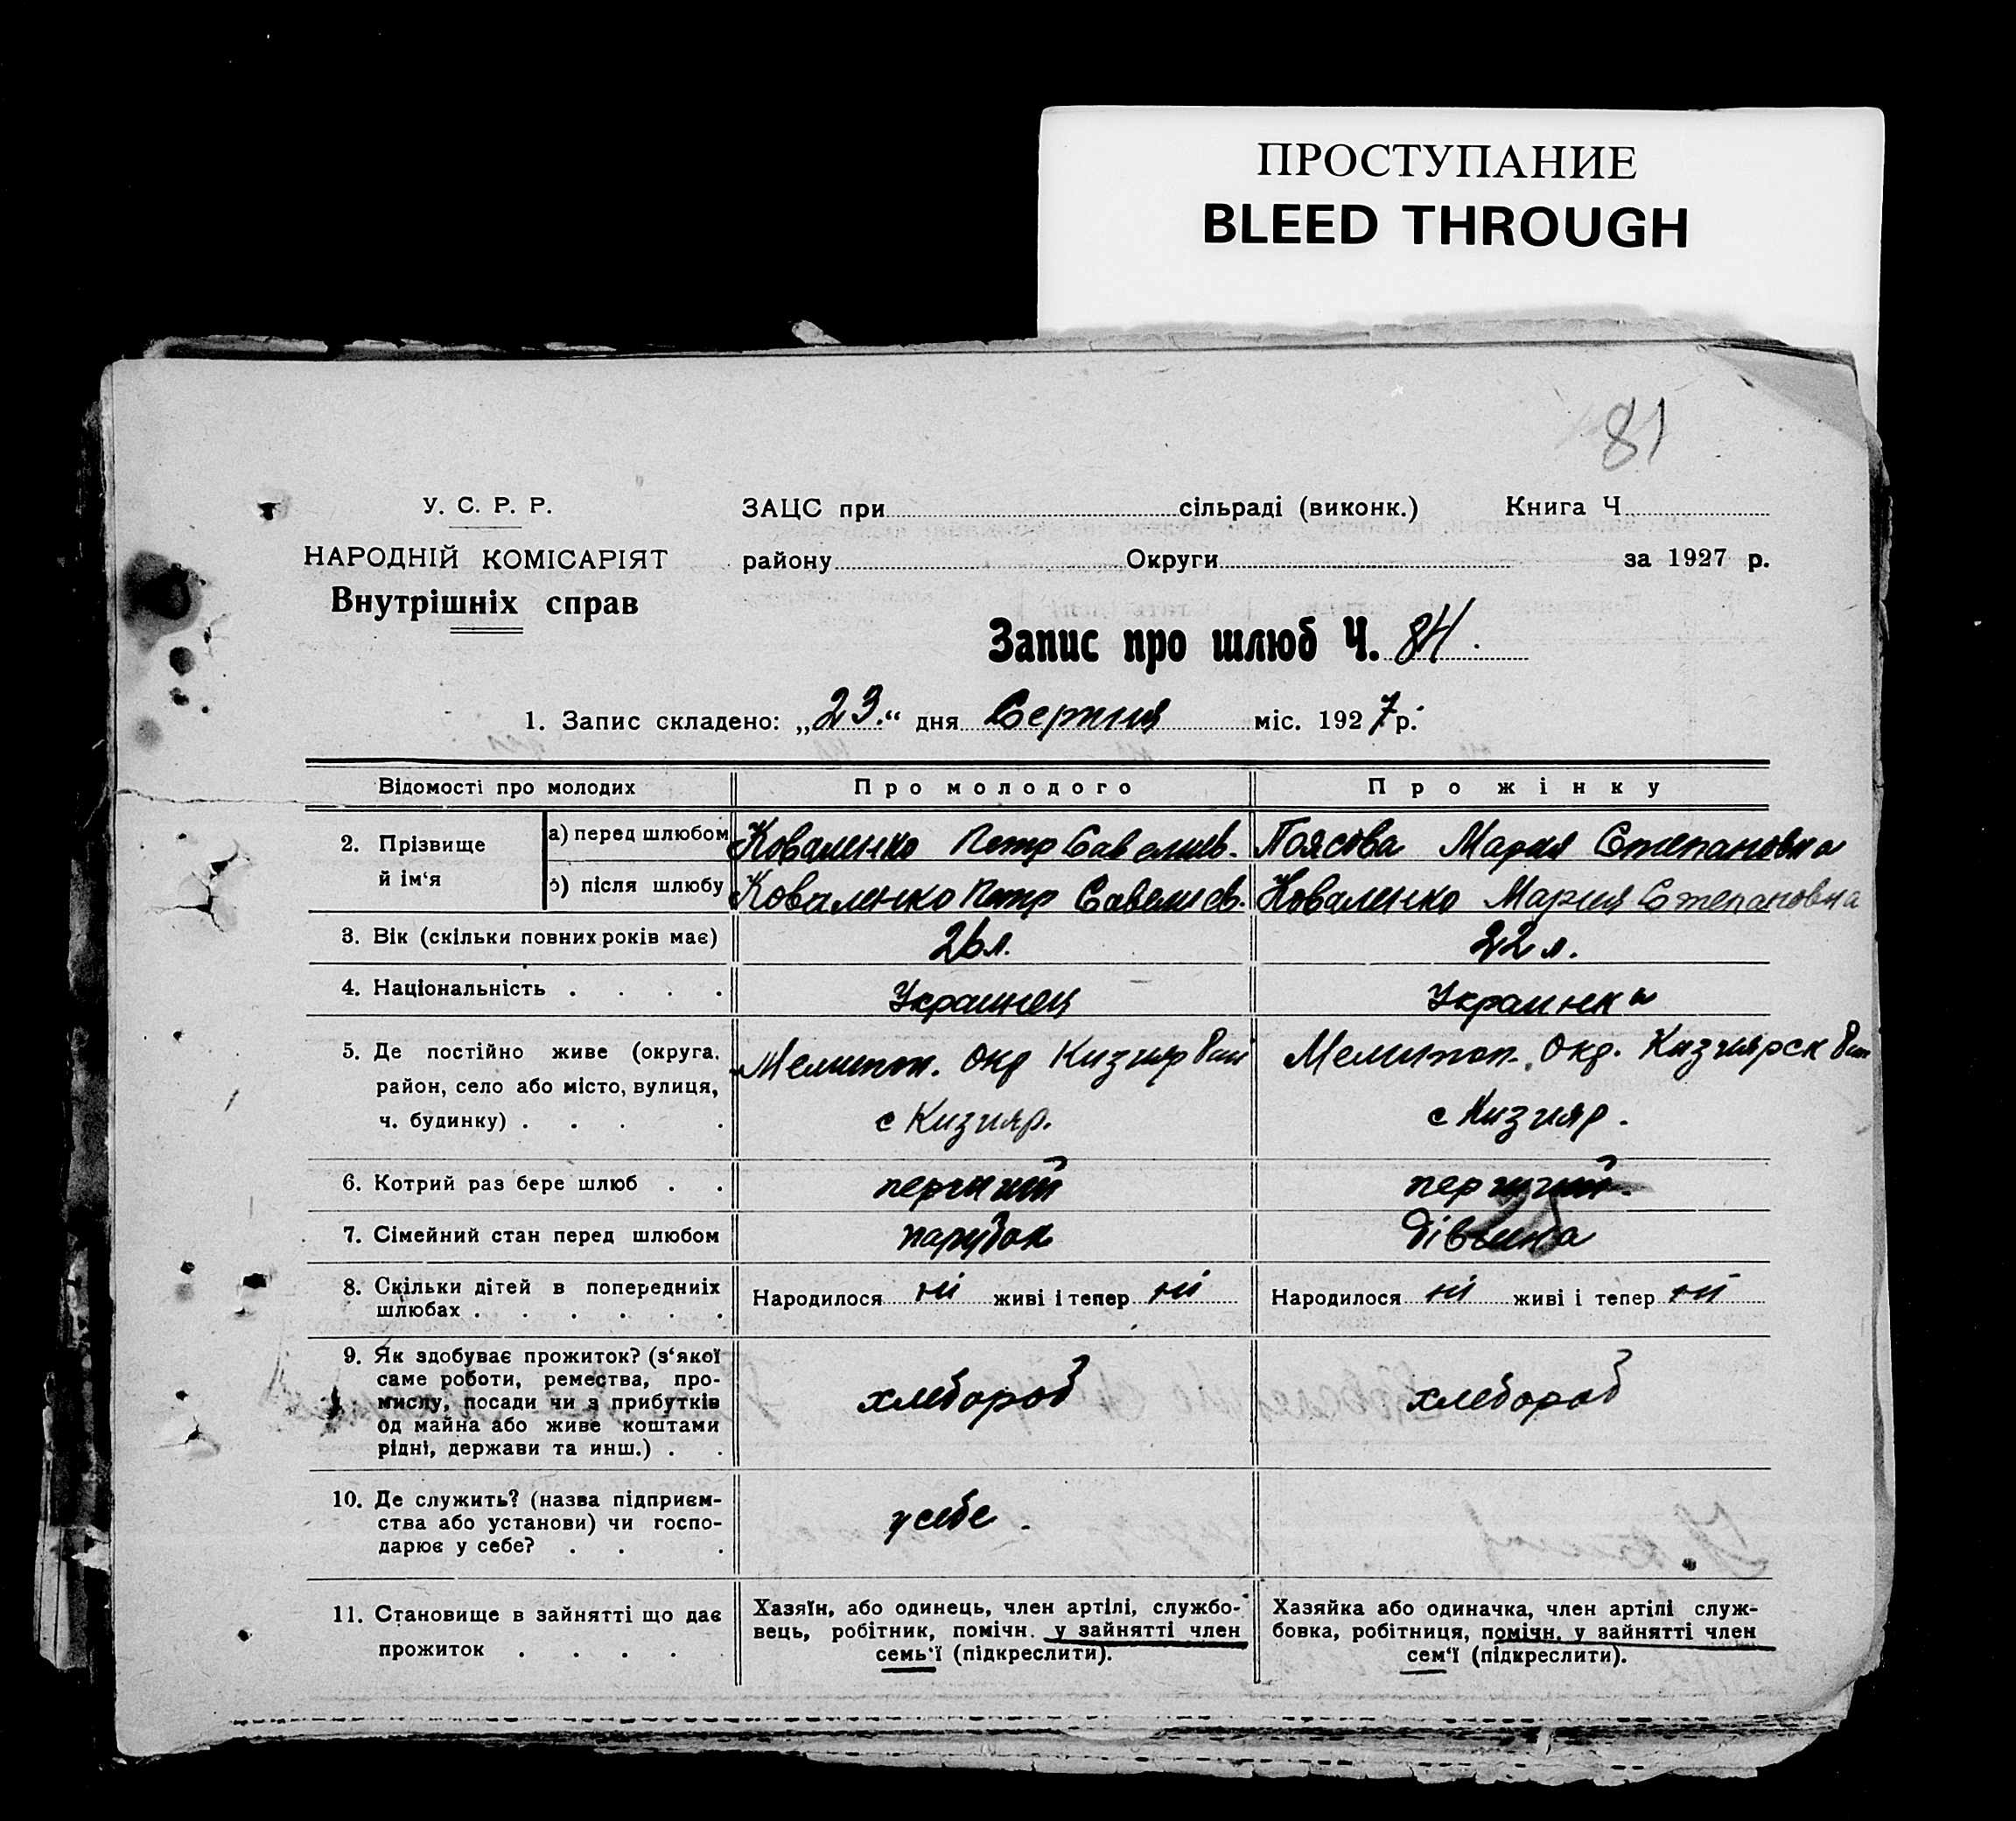 ПРОСТУПАНИЕ
BLEED THROUGH
81
У. С. Р. Р.
НАРОДНІЙ КОМІСАРІЯТ
Внутрішніх справ
ЗАЦС при сільраді (виконк.) Книга Ч
району Округи за 1927 р.
Запис про шлюб Ч. 84.
1. Запис складено: „23.“ дня Серпня міс. 1927 р.
Відомості про молодих Про молодого Про жінку
2. Прізвище й ім‘я
а) перед шлюбом Коваленко Петр Савелиев. Поясова Мария Степановна
б) після шлюбу Коваленко Петр Савелиев. Коваленко Мария Степановна
3. Вік (скільки повних років має) 26 л. 22 л.
4. Національність . . . . Украинец Украинка
5. Де постійно живе (округа, Мелитоп. Окр Кизияр Рай Мелитоп. Окр. Кизиярск Рай
район, село або місто, вулиця,
ч. будинку) . . . . с Кизияр. с Кизияр.
6. Котрий раз бере шлюб . . перший перший.
7. Сімейний стан перед шлюбом парубок дівчина
8. Скільки дітей в попередніх
шлюбах . . . . . . Народилося ні живі і тепер ні Народилося ні живі і тепер ні
9. Як здобуває прожиток? (з‘якої
саме роботи, ремества, про-
мислу, посади чи з прибутків хлебороб хлебороб
од майна або живе коштами
рідні, держави та инш.) . .
10. Де служить? (назва підприєм-
ства або установи) чи госпо- у себе.
дарює у себе? . . .
11. Становище в зайнятті що дає
прожиток . . . . .
Хазяїн, або одинець, член артілі, службо-
вець, робітник, помічн. у зайнятті член
семь‘ї (підкреслити).
Хазяйка або одиначка, член артілі служ-
бовка, робітниця, помічн. у зайнятті член
сем‘ї (підкреслити).